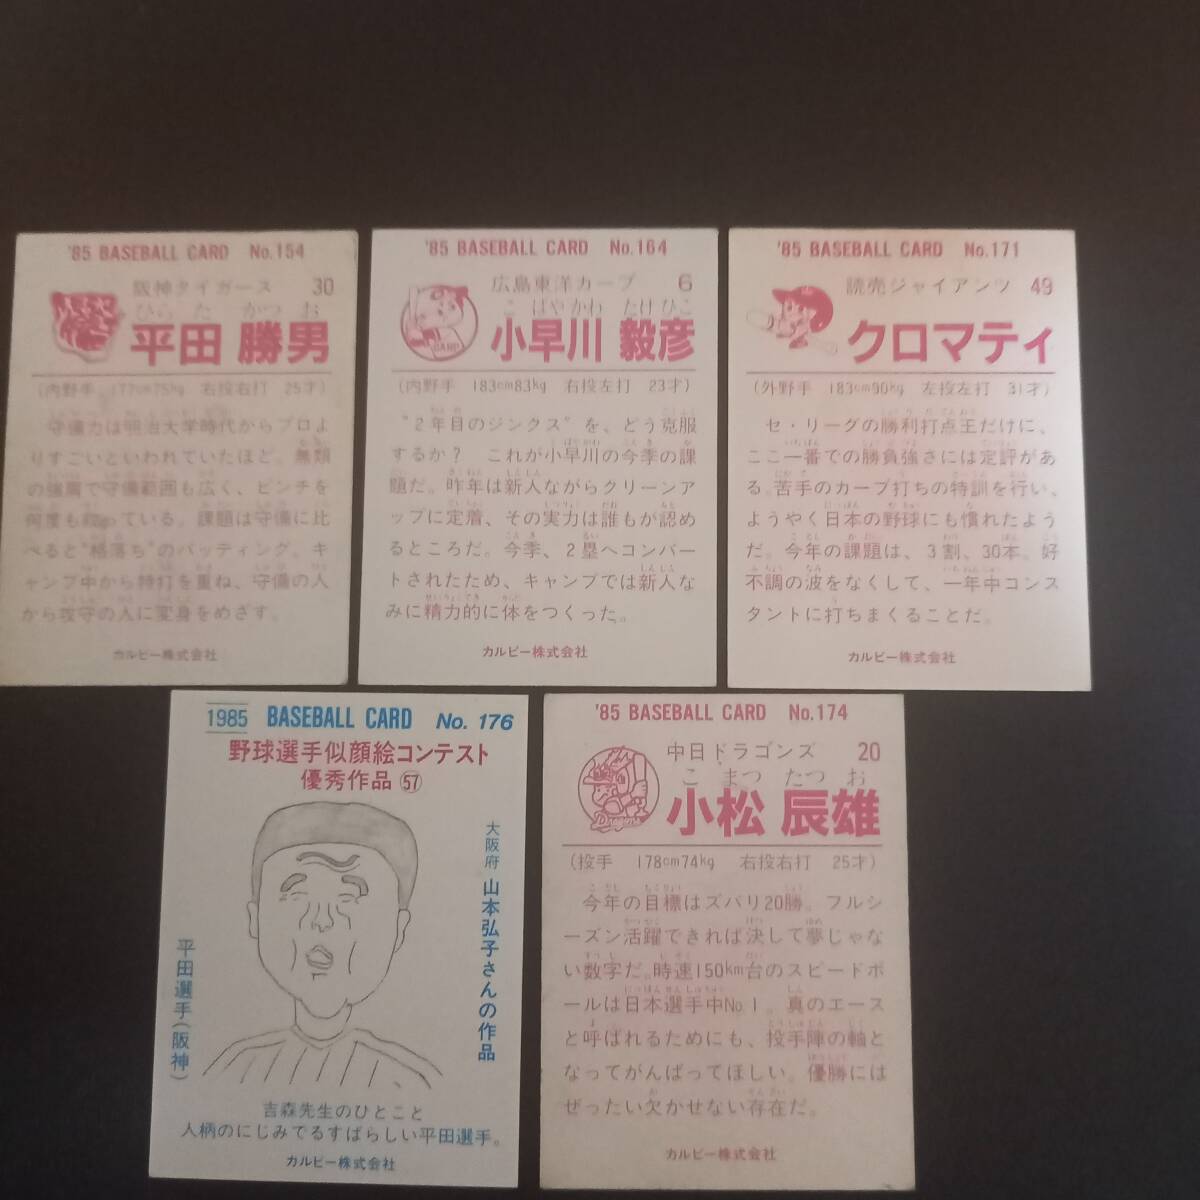 '85 BASEBALL CARD No.154
阪神タイガース 30
ひらた かつお
平田 勝男
(内野手 177cm75kg 右投右打 25才)
守備力は明治大学時代からプロよ
りすごいといわれていたほど。無類
の強肩で守備範囲も広く、ピンチを
何度も救っている。課題は守備に比
べると"格落ち"のバッティング、キ
ャンプ中から特打を重ね、守備の人
から攻守の人に変身をめざす。
カルビー株式会社
'85 BASEBALL CARD No.164
広島東洋カープ 6
こばやかわ たけひこ
小早川 毅彦
(内野手 183cm83kg 右投左打 23才)
"2年目のジンクス"を、どう克服
するか? これが小早川の今季の課
題だ。昨年は新人ながらクリーンア
ップに定着、その実力は誰もが認め
るところだ。今季、2塁へコンバー
トされたため、キャンプでは新人な
みに精力的に体をつくった。
カルビー株式会社
'85 BASEBALL CARD No.171
読売ジャイアンツ 49
クロマティ
(外野手 183cm90kg 左投左打 31才)
セ・リーグの勝利打点王だけに、
ここ一番での勝負強さには定評があ
る。苦手のカーブ打ちの特訓を行い、
ようやく日本の野球にも慣れたよう
だ。今年の課題は、3割、30本。好
不調の波をなくして、一年中コンス
タントに打ちまくることだ。
カルビー株式会社
1985 BASEBALL CARD No. 176
野球選手似顔絵コンテスト
優秀作品 57
大阪府 山本弘子さんの作品
平田選手(阪神)
吉森先生のひとこと
人柄のにじみでるすばらしい平田選手。
カルビー株式会社
'85 BASEBALL CARD No.174
中日ドラゴンズ 20
こまつ たつお
小松 辰雄
(投手 178cm74kg 右投右打 25才)
今年の目標はズバリ20勝。フルシ
ーズン活躍できれば決して夢じゃな
い数字だ。時速150km台のスピードボ
ールは日本選手中No.1。真のエース
と呼ばれるためにも、投手陣の軸と
なってがんばってほしい。優勝には
ぜったい欠かせない存在だ。
カルビー株式会社